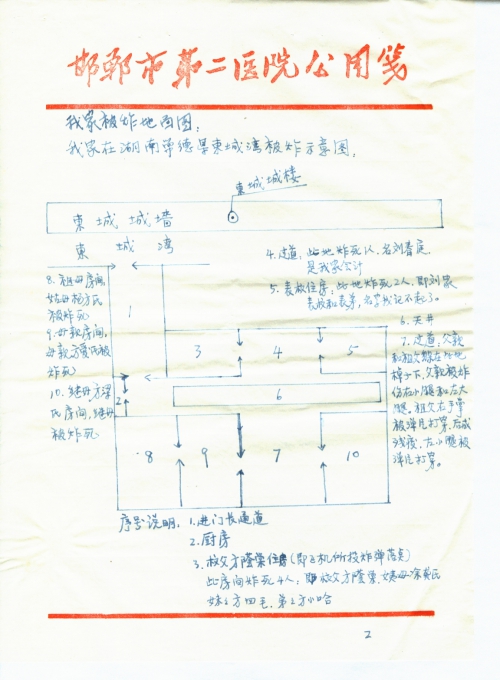 邯郸市第二医院公用笺
我家被炸地图图：
我家在湖南常德县东城湾被炸示意图：
東城城楼
東城城墙
東城湾
4.过道：此地炸死1人，名刘春庭
是我家会计
5.表叔住房：此地炸死2人，即刘家
表叔和表弟，名字我记不起了。
6.天井
7.过道：父亲
和祖父躲在此地
桌子下，父亲被炸
伤在小腿和左大
腿，祖父右手掌
被弹片打穿，后成
残废，左小腿被
弹片打穿。
8.祖母房间
姑母
被炸死
9.母亲房间，
母亲
炸死
10.继母方
氏房间，继母
被炸死
1
2
3
4
5
6
8
9
7
10
序号说明：1.进门长通道
2.厨房
3.叔父方隆荣住房(即飞机所投炸弹落点)
此房间炸死4人：即叔父方隆荣，姨母涂
妹之方四毛，弟之方小哈
2